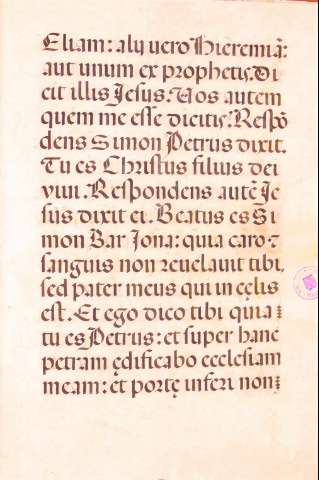 Eliam: alij uero Hieremiā:
aut unum ex prophetis. Di
cit illis Jesus. Uos autem
quem me esse dicitis? Respō
dens Simon Petrus dixit.
Tu es Christus filius dei
viui. Respondens autē Je
sus dixit ei. Beatus es Si
mon Bar Jona: quia caro ⁊
sanguis non reuelauit tibi,
sed pater meus qui in cęlis
est. Et ego dico tibi quia
tu es Petrus: et super hanc
petram ędificabo ecclesiam
meam: et portę inferi non